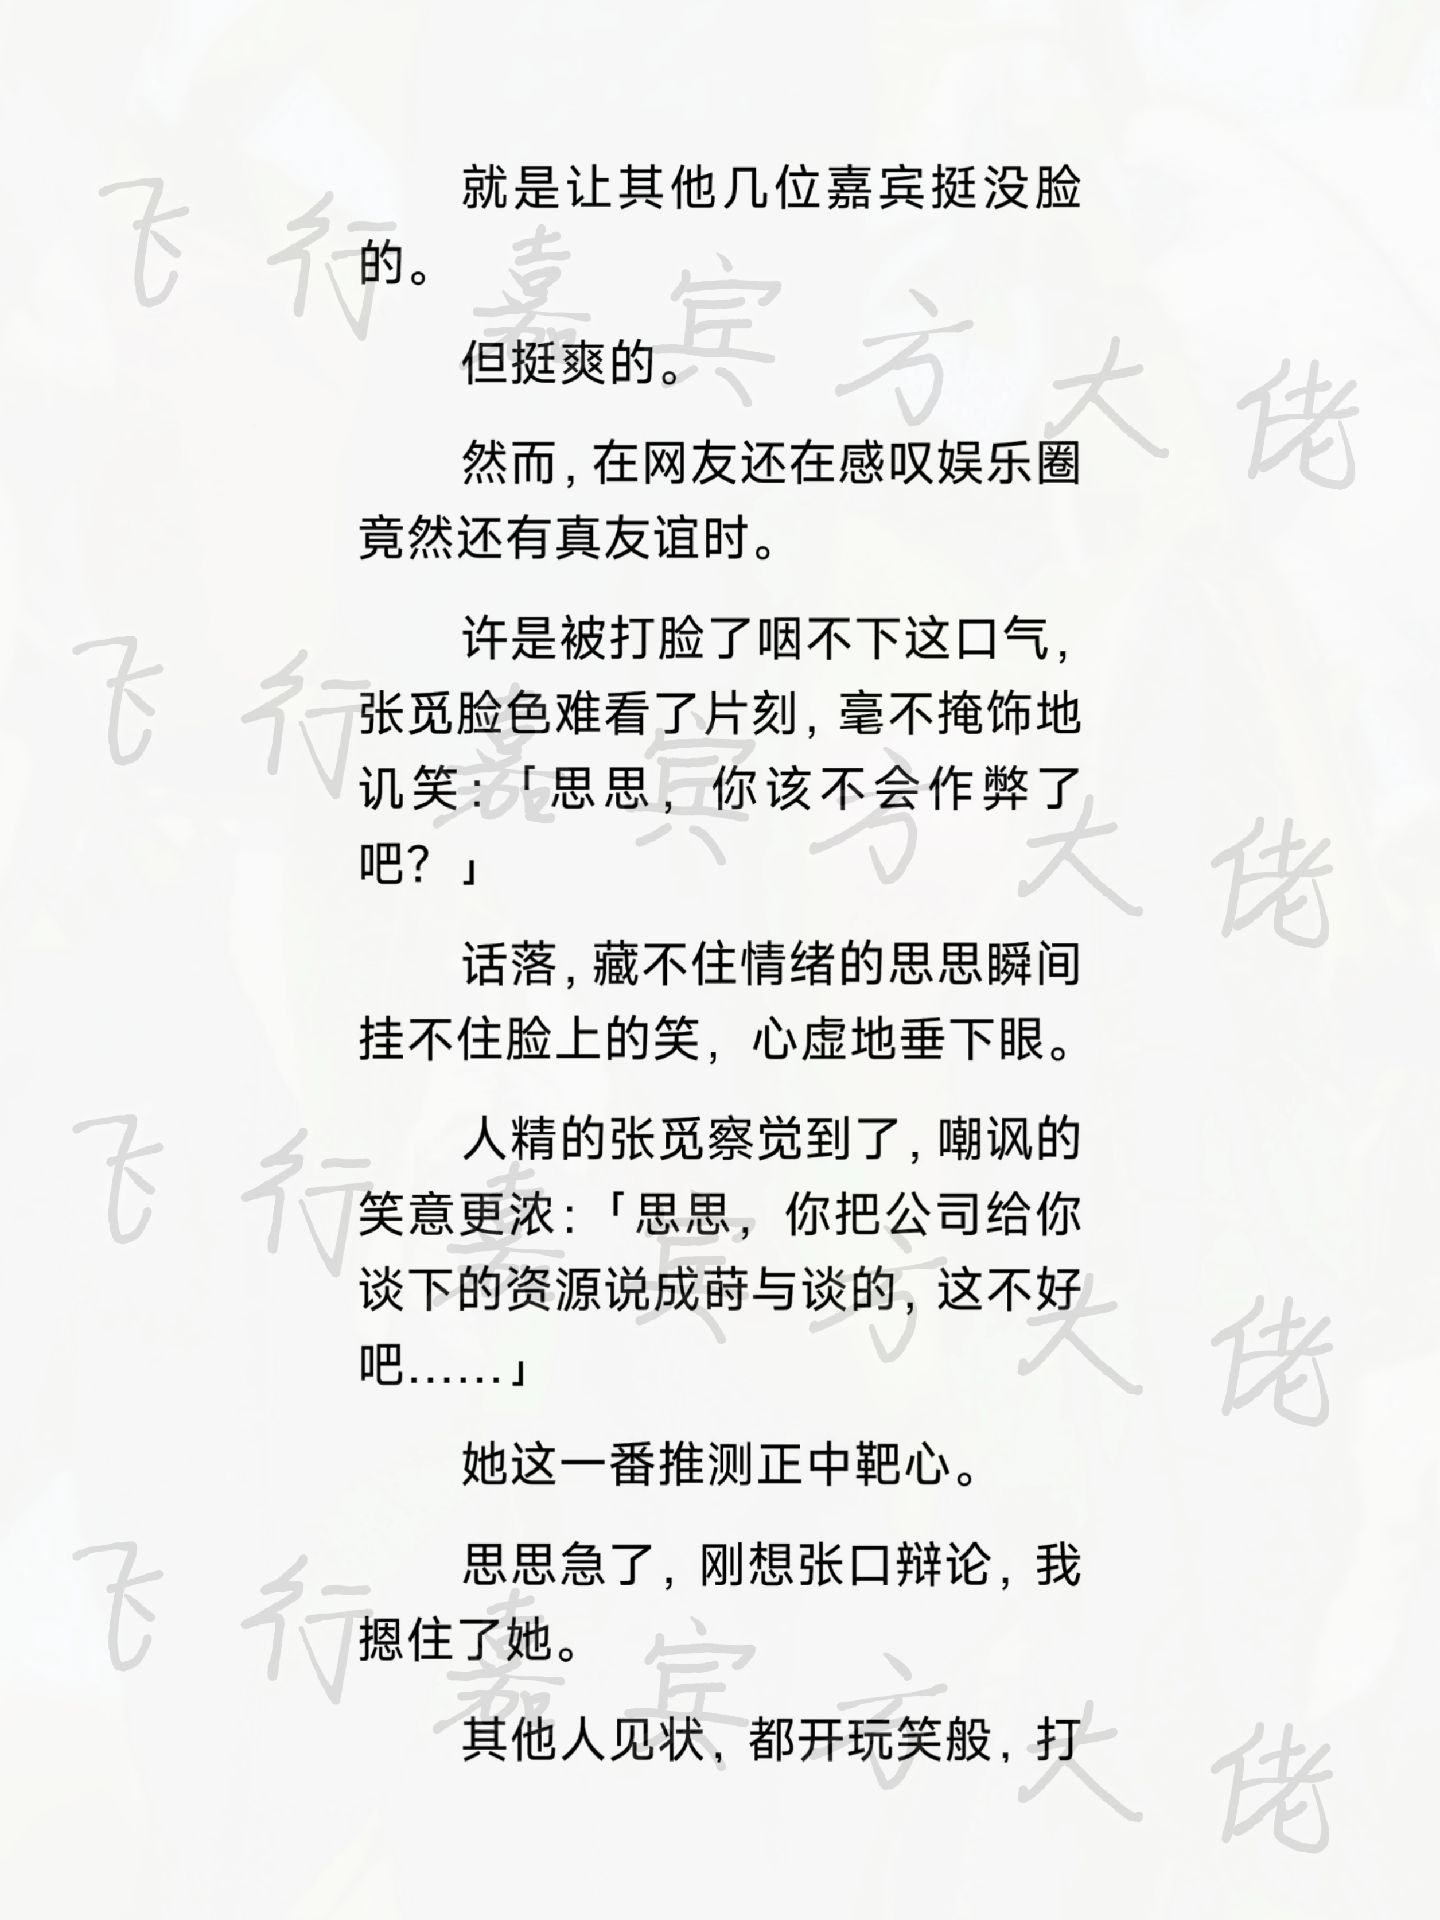 就是让其他几位嘉宾挺没脸
的。
但挺爽的。
然而,在网友还在感叹娱乐圈
竟然还有真友谊时。
许是被打脸了咽不下这口气,
张觅脸色难看了片刻,毫不掩饰地
讥笑:「思思,你该不会作弊了
吧?」
话落,藏不住情绪的思思瞬间
挂不住脸上的笑,心虚地垂下眼。
人精的张觅察觉到了,嘲讽的
笑意更浓:「思思,你把公司给你
谈下的资源说成莳与谈的,这不好
吧……」
她这一番推测正中靶心。
思思急了,刚想张口辩论,我
摁住了她。
其他人见状,都开玩笑般,打
飞行嘉宾方大佬
飞行嘉宾方大佬
飞行嘉宾方大佬
飞行嘉宾方大佬